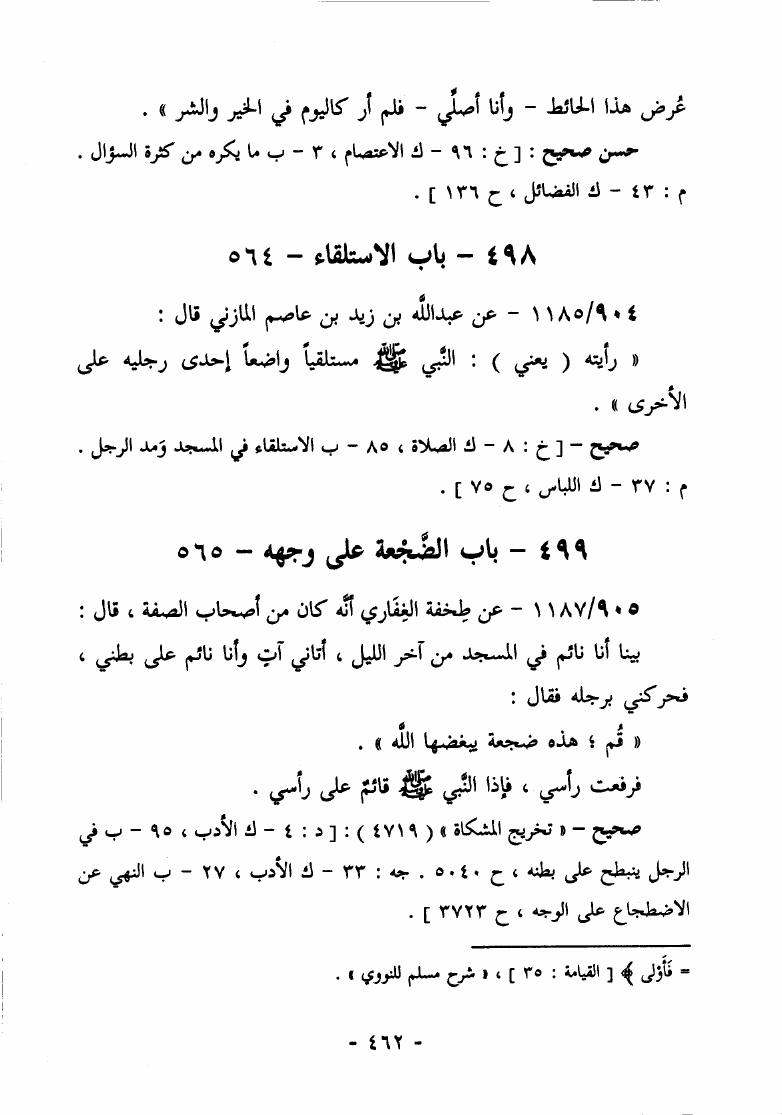 عُرض هذا الحائط – وأنا أصلِّي – فلم أر كاليوم في الخير والشر » .
حسن صحيح : [ خ : ٩٦ – ك الاعتصام ، ٣ – ب ما يكره من كثرة السؤال .
م : ٤٣ – ك الفضائل ، ح ١٣٦ ] .
٤٩٨ – باب الاستلقاء – ٥٦٤
١١٨٥/٩٠٤ – عن عبدالله بن زيد بن عاصم المازني قال :
« رأيته ( يعني ) : النَّبي ﷺ مستلقياً واضعاً إحدى رجليه على
الأخرى » .
صحيح – [ خ : ٨ – ك الصلاة ، ٨٥ – ب الاستلقاء في المسجد وَمد الرجل .
م : ٣٧ – ك اللباس ، ح ٧٥ ] .
٤٩٩ – باب الضَّجْعة على وجهه – ٥٦٥
١١٨٧/٩٠٥ – عن طِخفة الغِفَاري أنَّه كان من أصحاب الصفة ، قال :
بينا أنا نائم في المسجد من آخر الليل ، أتاني آتٍ وأنا نائم على بطني ،
فحركني برجله فقال :
« قُم ؛ هذه ضجعة يبغضها الله » .
فرفعت رأسي ، فإذا النَّبي ﷺ قائمٌ على رأسي .
صحيح – « تخريج المشكاة » ( ٤٧١٩ ) : [ د : ٤ – ك الأدب ، ٩٥ – ب في
الرجل ينبطح على بطنه ، ح ٥٠٤٠ . جه : ٣٣ – ك الأدب ، ٢٧ – ب النهي عن
الاضطجاع على الوجه ، ح ٣٧٢٣ ] .
= فَأَوْلَى ﴾ [ القيامة : ٣٥ ] ، « شرح مسلم للنووي » .
- ٤٦٢ -